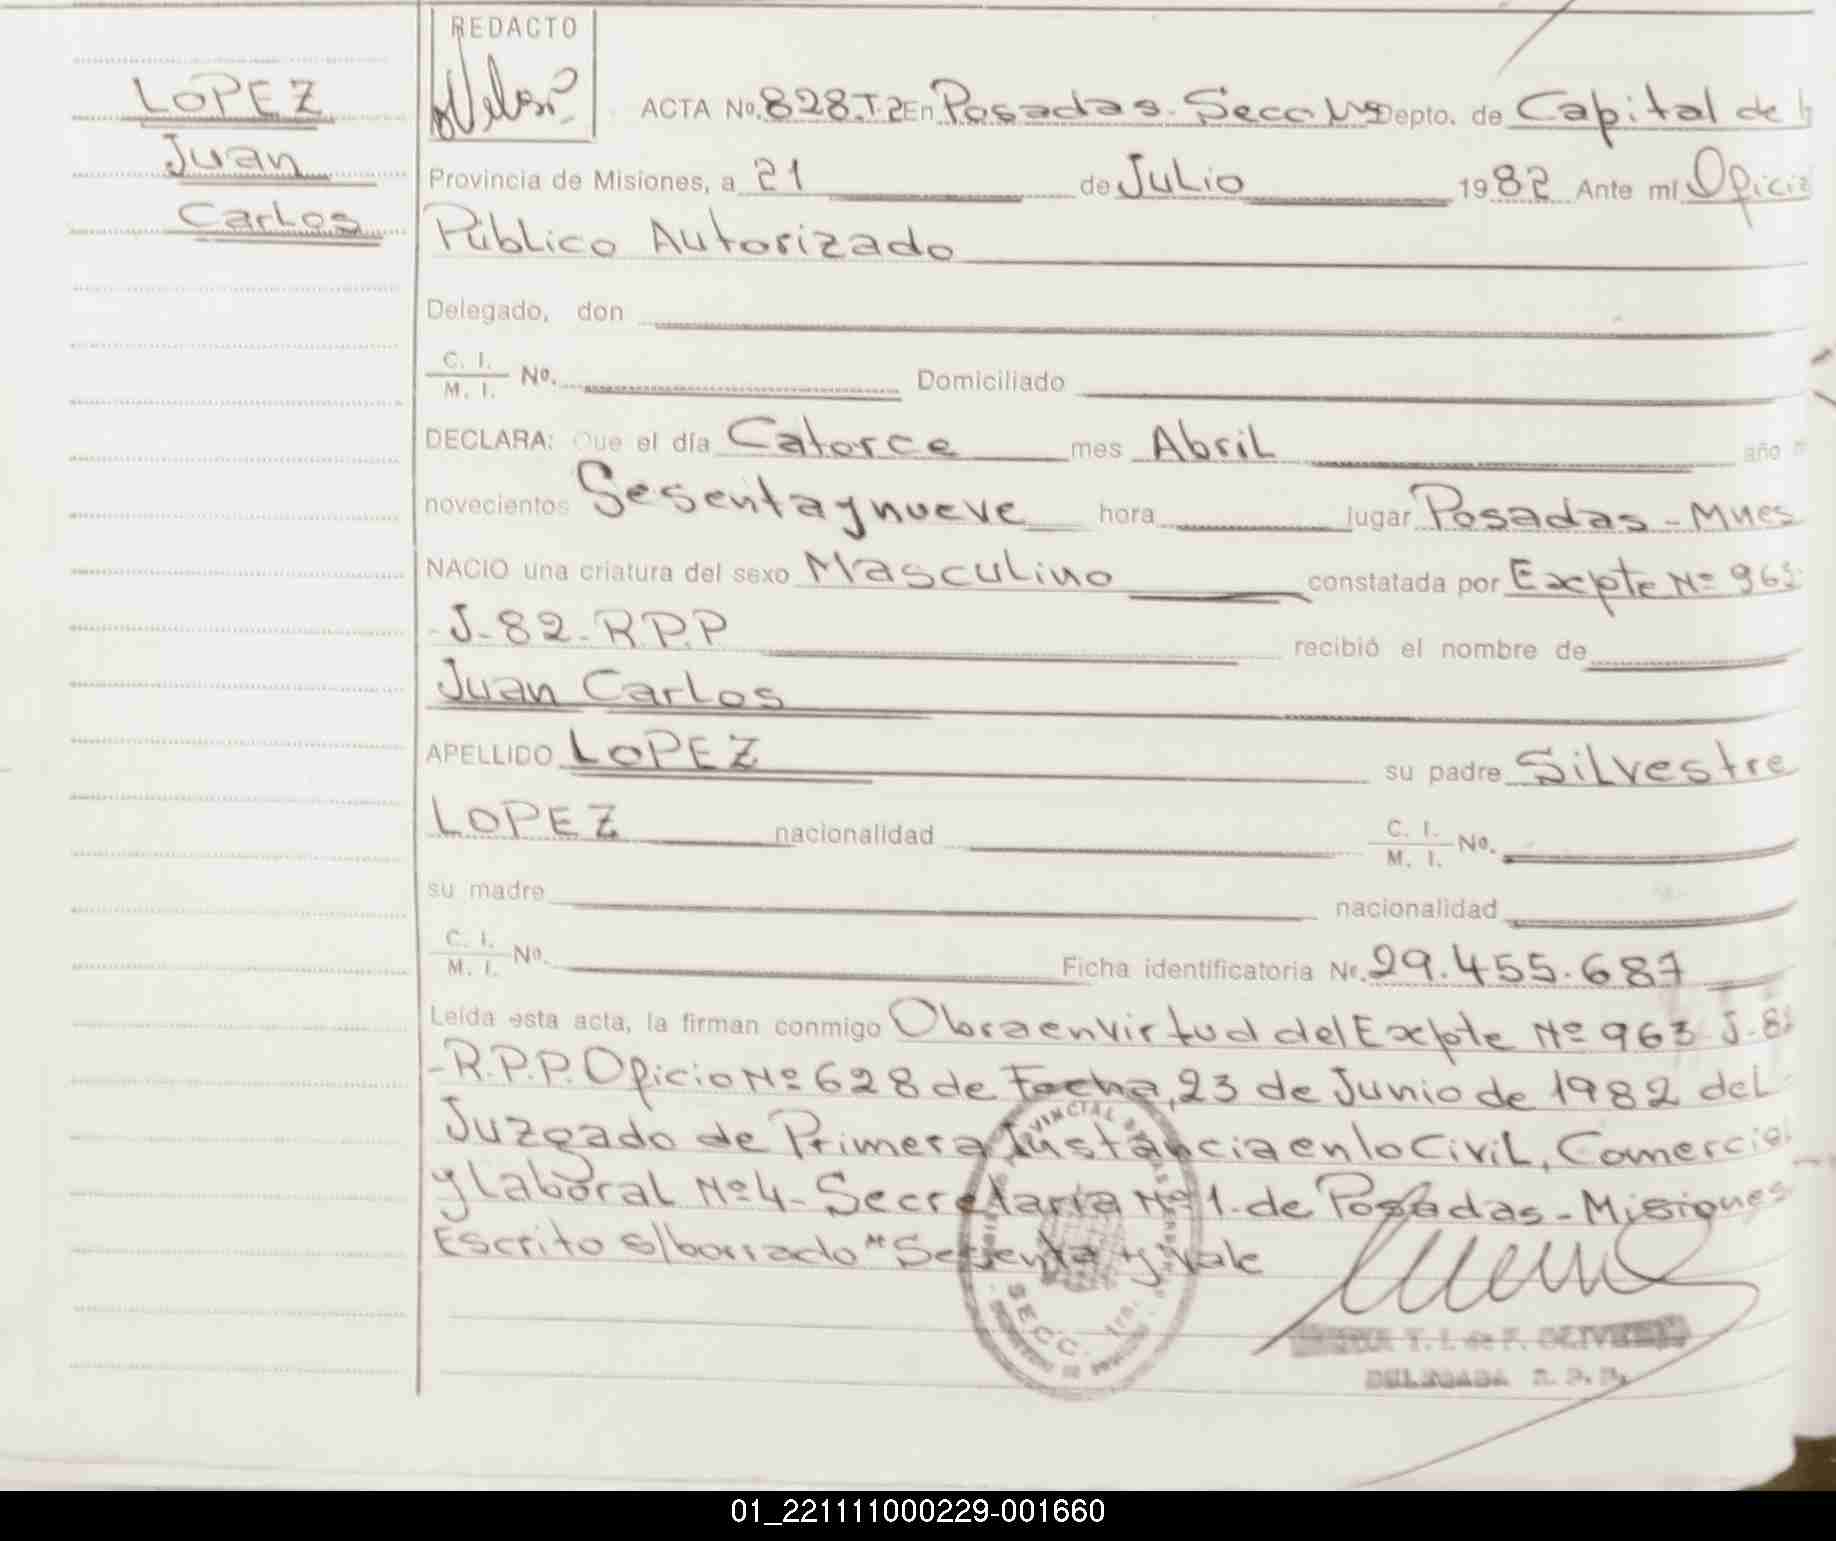 LOPEZ
Juan
Carlos
REDACTO
ACTA No. 828.T.2 En Posadas. Secc Depto. de Capital de l
Provincia de Misiones, a 21 de Julio 1982 Ante mí Oficia
Público Autorizado
Delegado, don
C. I. / M. I. No. Domiciliado
DECLARA: Que el día Catorce mes Abril año m
novecientos Sesenta y nueve hora lugar Posadas - Mnes
NACIO una criatura del sexo Masculino constatada por Expte Nº 963
-J-82-R.P.P recibió el nombre de
Juan Carlos
APELLIDO LOPEZ su padre Silvestre
LOPEZ nacionalidad C. I. / M. I. No.
su madre nacionalidad
C. I. / M. I. No. Ficha identificatoria No. 29.455.687
Leída esta acta, la firman conmigo Obra en virtud del Expte Nº 963 J-82
-R.P.P. Oficio Nº 628 de Fecha, 23 de Junio de 1982 del
Juzgado de Primera Instancia en lo Civil, Comercial
y Laboral Nº 4 - Secretaría Nº 1. de Posadas - Misiones
Escrito s/borrado "Sesenta y Vale
SECC. 1ra.
T. I. de F. OLIVEIRA
DELEGADA R. P. P.
01_221111000229-001660